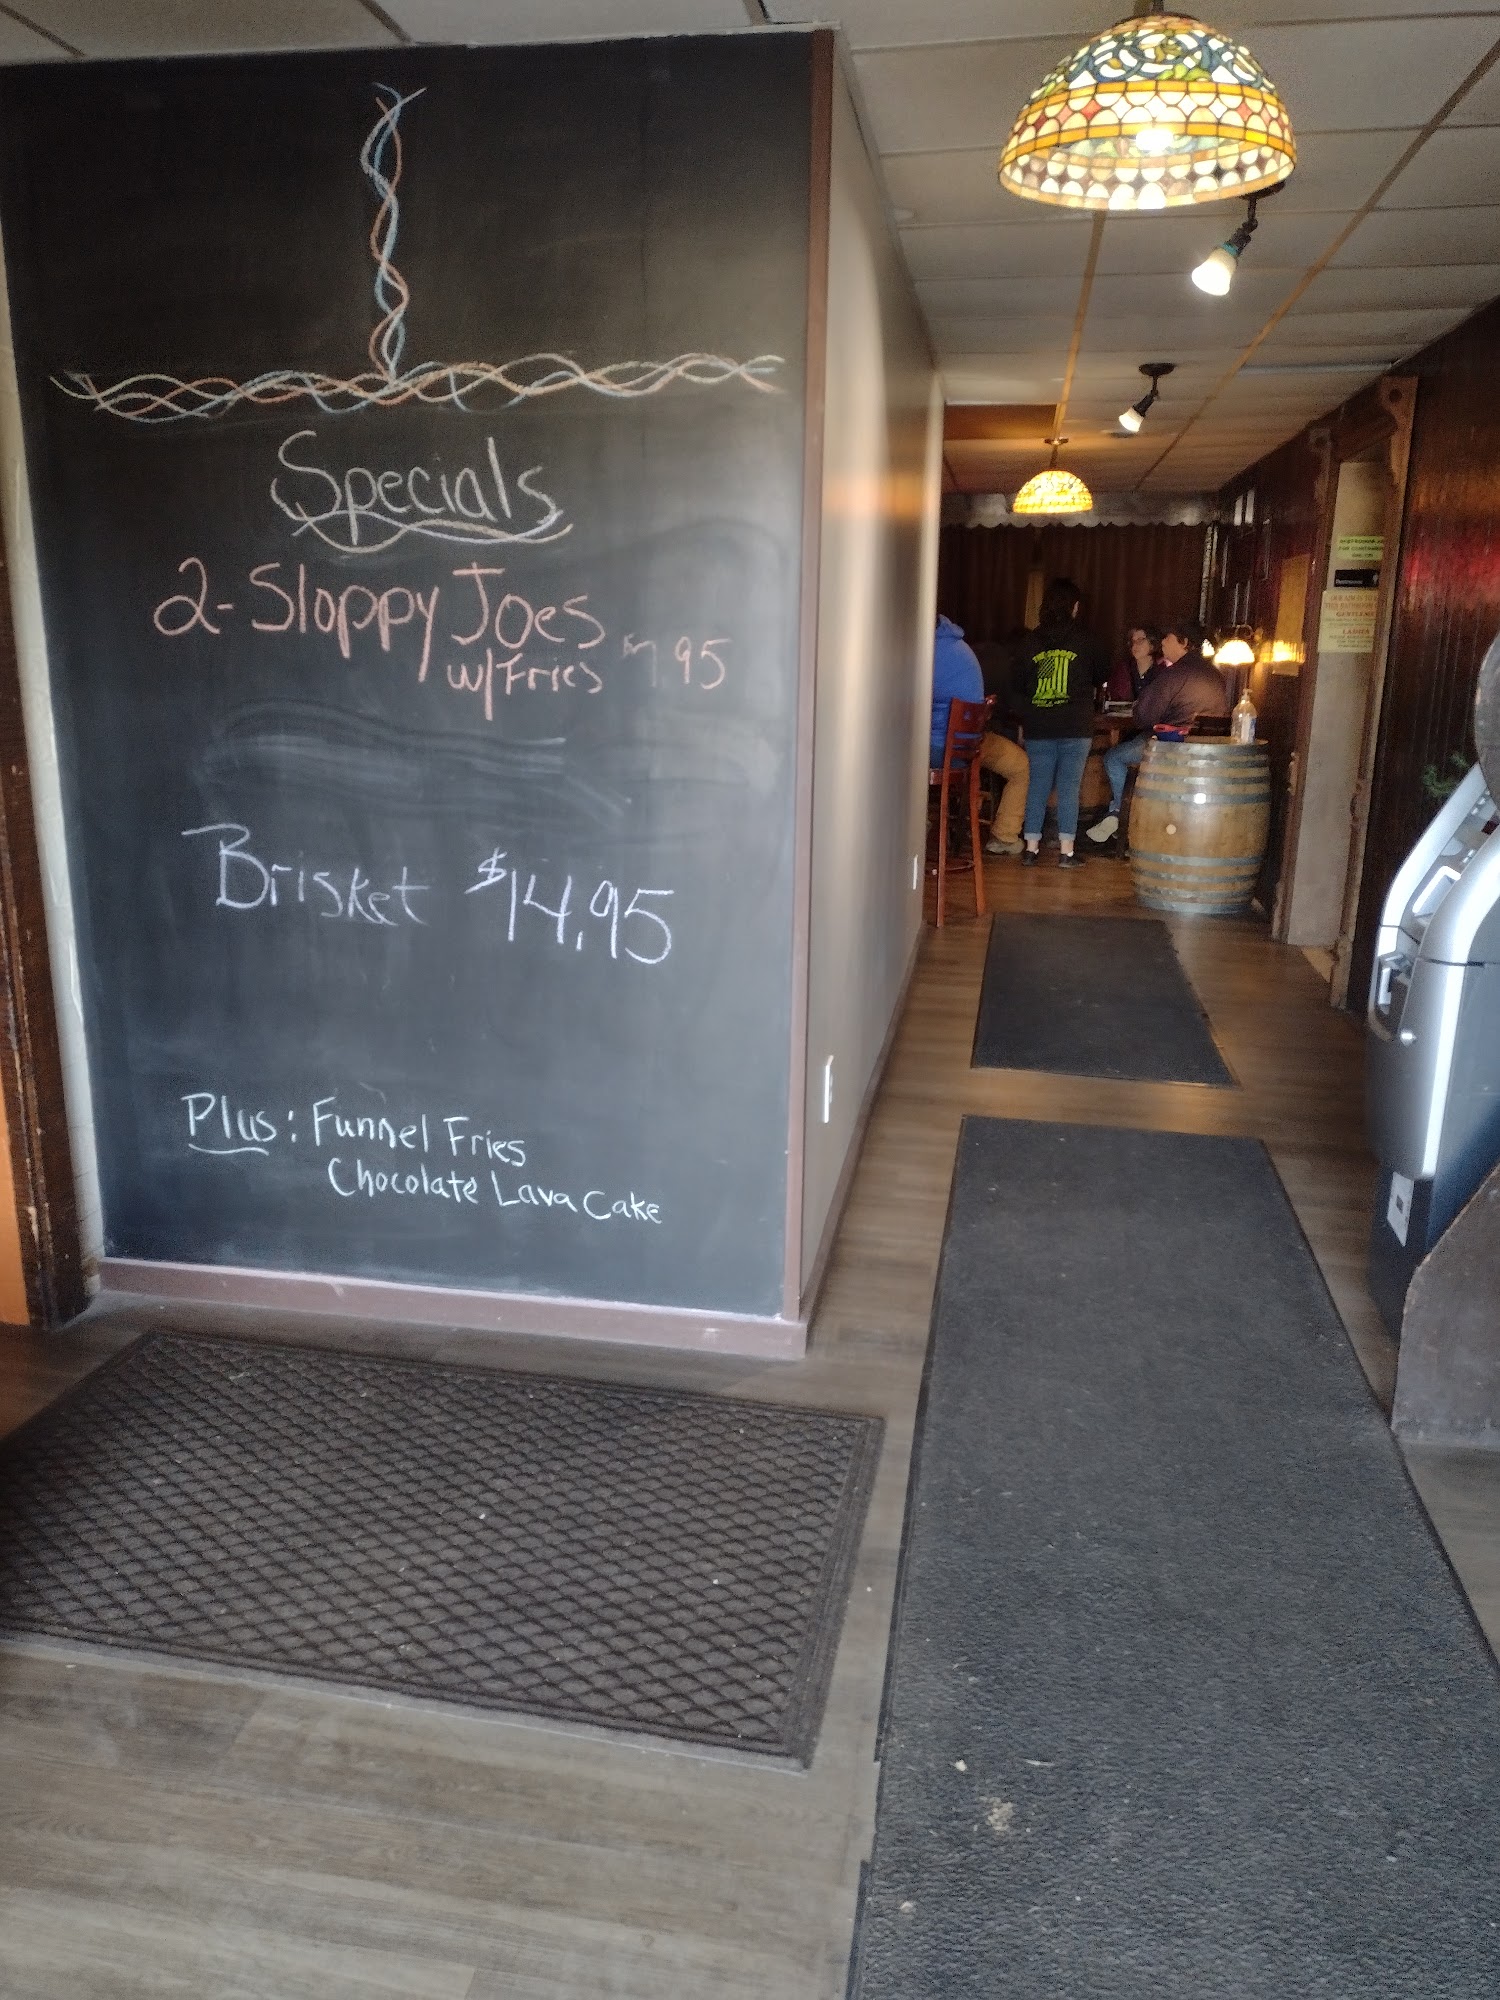 Specials
2-Sloppy Joes
w/Fries $7.95
Brisket $14.95
Plus: Funnel Fries
Chocolate Lava Cake
THE SUMMIT
GENTLEMEN
LADIES